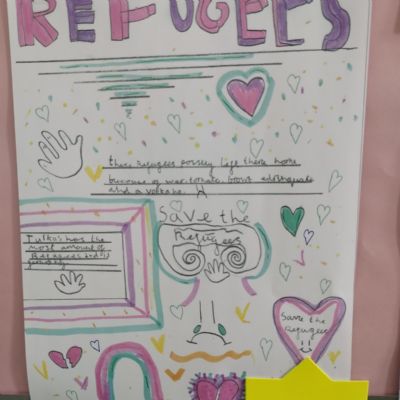 REFUGEES
these Refugees possey left there home
because of war, tornato, bows, earthquake
and a volkano.
Save the
Refugees
Turkos has the
most amount of
Refugees and is
Save the
Refugees